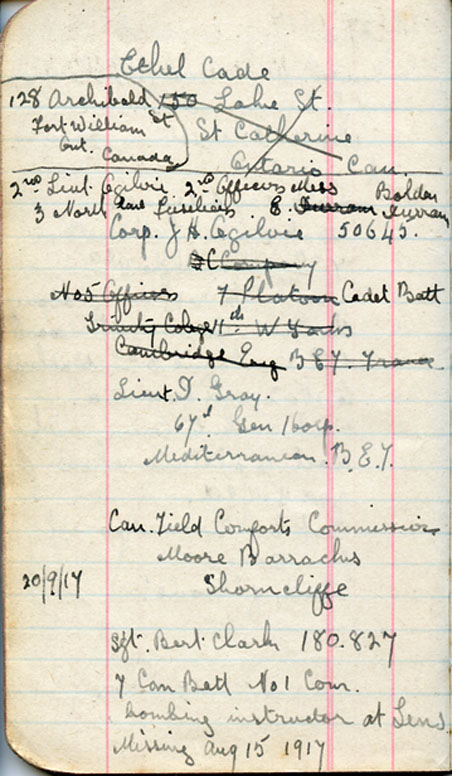 Ethel Cade
128 Archibald St 150 Lake St.
Fort William St Catherine
Ont. Canada Ontario Can.
2nd Lieut. Ogilvie 2nd Officers Mess Boldon
3 North Lan Fusiliers E. Durram Durram
Corp. J. H. Ogilvie 50645.
C Company
No 5 Officers 7 Platoon Cadet Batt
Trinity Colege 11th W Yorks
Cambridge Eng B E F. France
Lieut. D. Gray.
67th Gen Hosp.
Mediterranean. B. E. F.
Can. Field Comforts Commission
Moore Barracks
20/9/17 Shorncliffe
Sgt. Bert. Clark 180.827
7 Can Batt No 1 Com.
bombing instructor at Lens
Missing Aug 15 1917